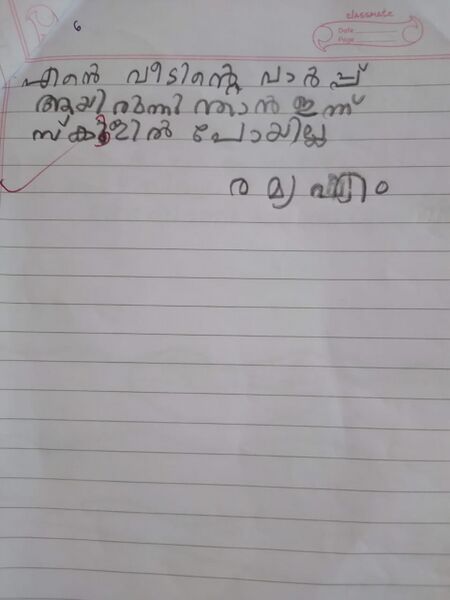 classmate
Date
Page
6
എന്റെ വീടിന്റെ വാർപ്പ്
ആയിരുന്നു ഞാൻ ഇന്ന്
സ്കൂളിൽ പോയില്ല
രമ്യ